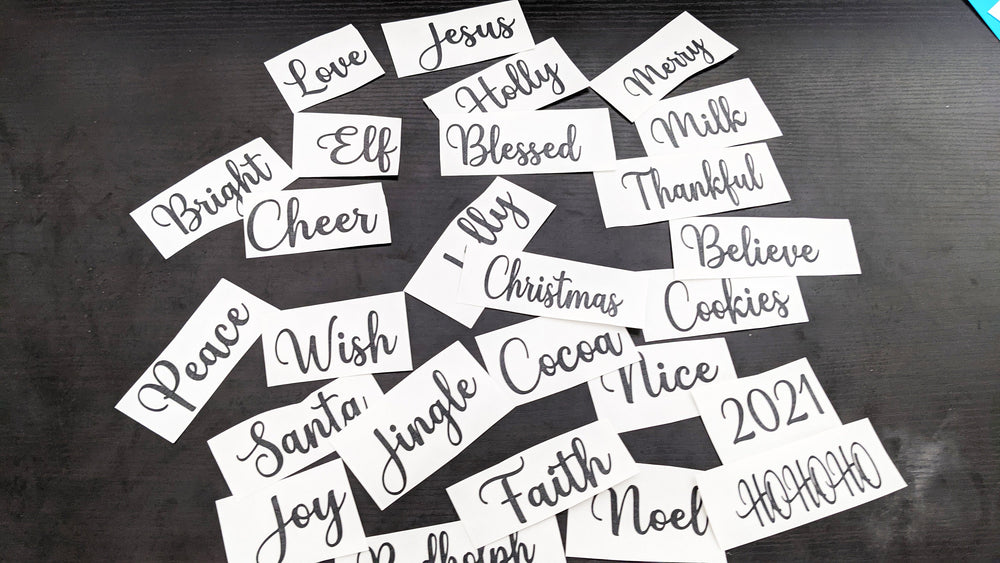 Love
Jesus
Holly
Merry
Elf
Blessed
Milk
Bright
Thankful
Cheer
Jolly
Believe
Christmas
Cookies
Peace
Wish
Cocoa
Nice
Santa
Jingle
2021
Faith
HOHOHO
Joy
Noel
Rudholph